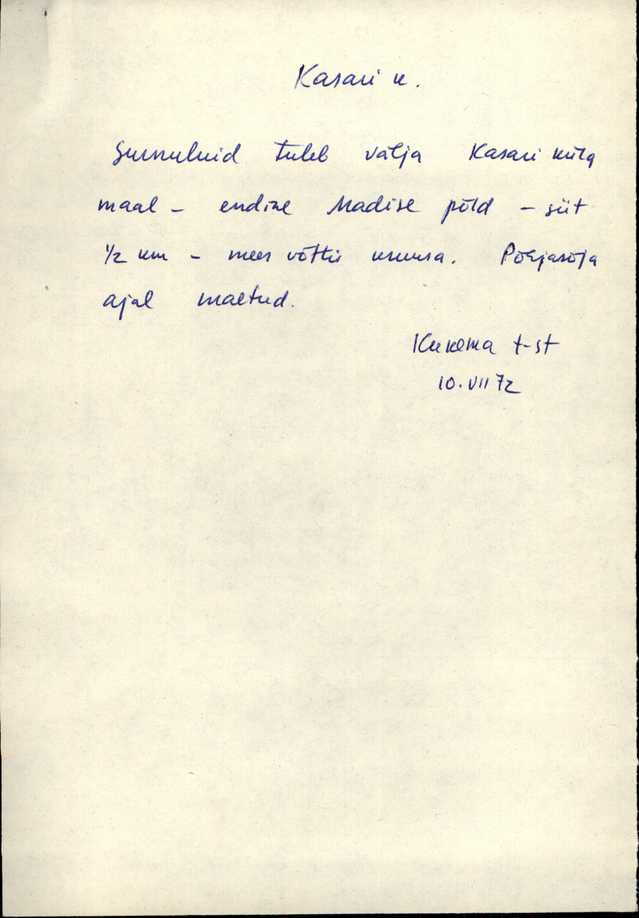 Kasari k.
Surnuluid tuleb välja Kasari küla
maal – endine Madise põld – siit
1/2 km – mees võttis kruusa. Põhjasõja
ajal maetud.
Kukema t-st
10.VII 72